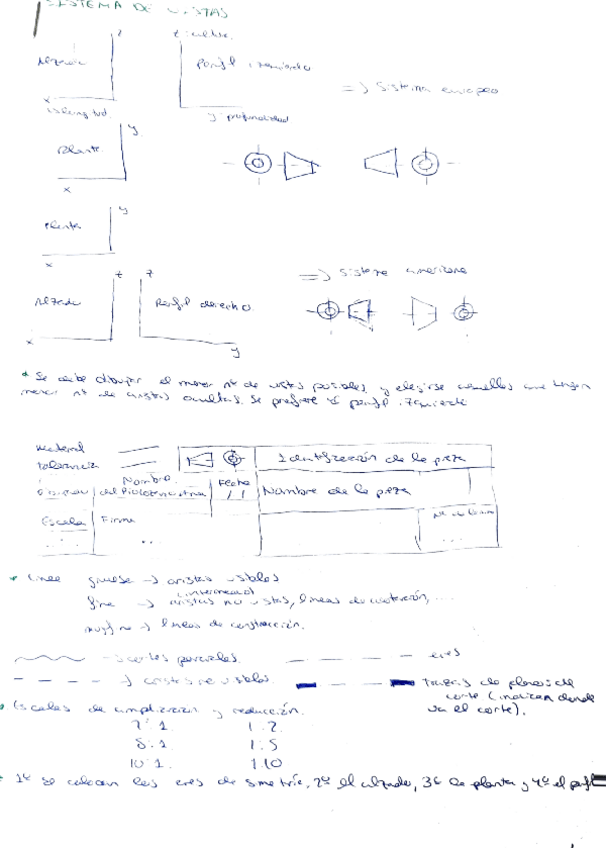 SISTEMA DE VISTAS
z z: altura
Alzado Perfil izquierdo
=> Sistema europeo
x
x: longitud y: profundidad
y
Planta
x
y
Planta
x
z z => Sistema americano
Alzado Perfil derecho
x
y
* Se debe dibujar el menor nº de vistas posibles, y elegirse aquellas que tengan
menor nº de aristas ocultas. Se prefiere el perfil izquierdo
Material
tolerancia Identificación de la pieza
Nombre Fecha
/ / Nombre de la pieza
Escala Firma
... ...
* Linea gruesa -> aristas visibles
(intermedia)
fina -> aristas no vistas, lineas de acotación, ...
muy fina -> lineas de construcción.
-> cortes parciales. ejes
-> aristas no visibles. trazas de planos de
corte (indican donde
va el corte).
* Escalas de ampliación y reducción.
2:1 1:2
5:1 1:5
10:1 1:10
* 1º se colocan los ejes de simetría, 2º el alzado, 3º la planta y 4º el perfil